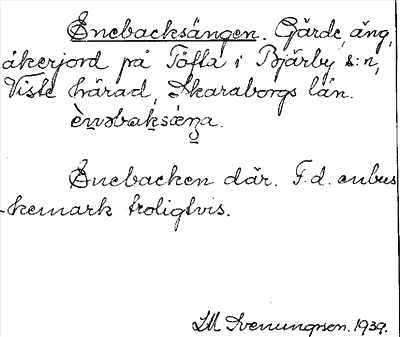 Enebacksängen. Gärde, äng,
åkerjord på Töfta i Bjärby s:n,
Viste härad, Skaraborgs län.
Enebacken där. F. d. enbus
-kemark troligtvis.
Svenungson. 1939.